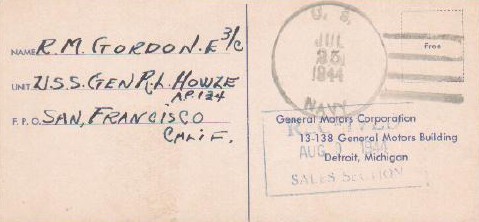 NAME R. M. GORDON. E 3/C
UNIT U.S.S. GEN R. L. HOWZE
AP. 134
F. P. O. SAN, FRANCISCO
CALIF.
U. S.
JUL
25
1944
NAVY
Free
General Motors Corporation
13-138 General Motors Building
Detroit, Michigan
RECEIVED
AUG 1944
SALES SECTION